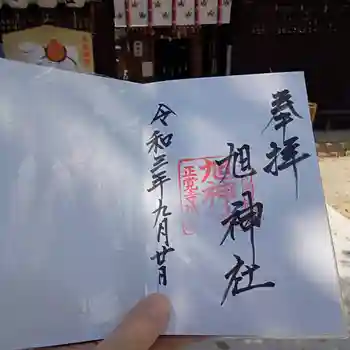 奉拝
旭神社
令和三年九月廿日
旭神
正覚寺